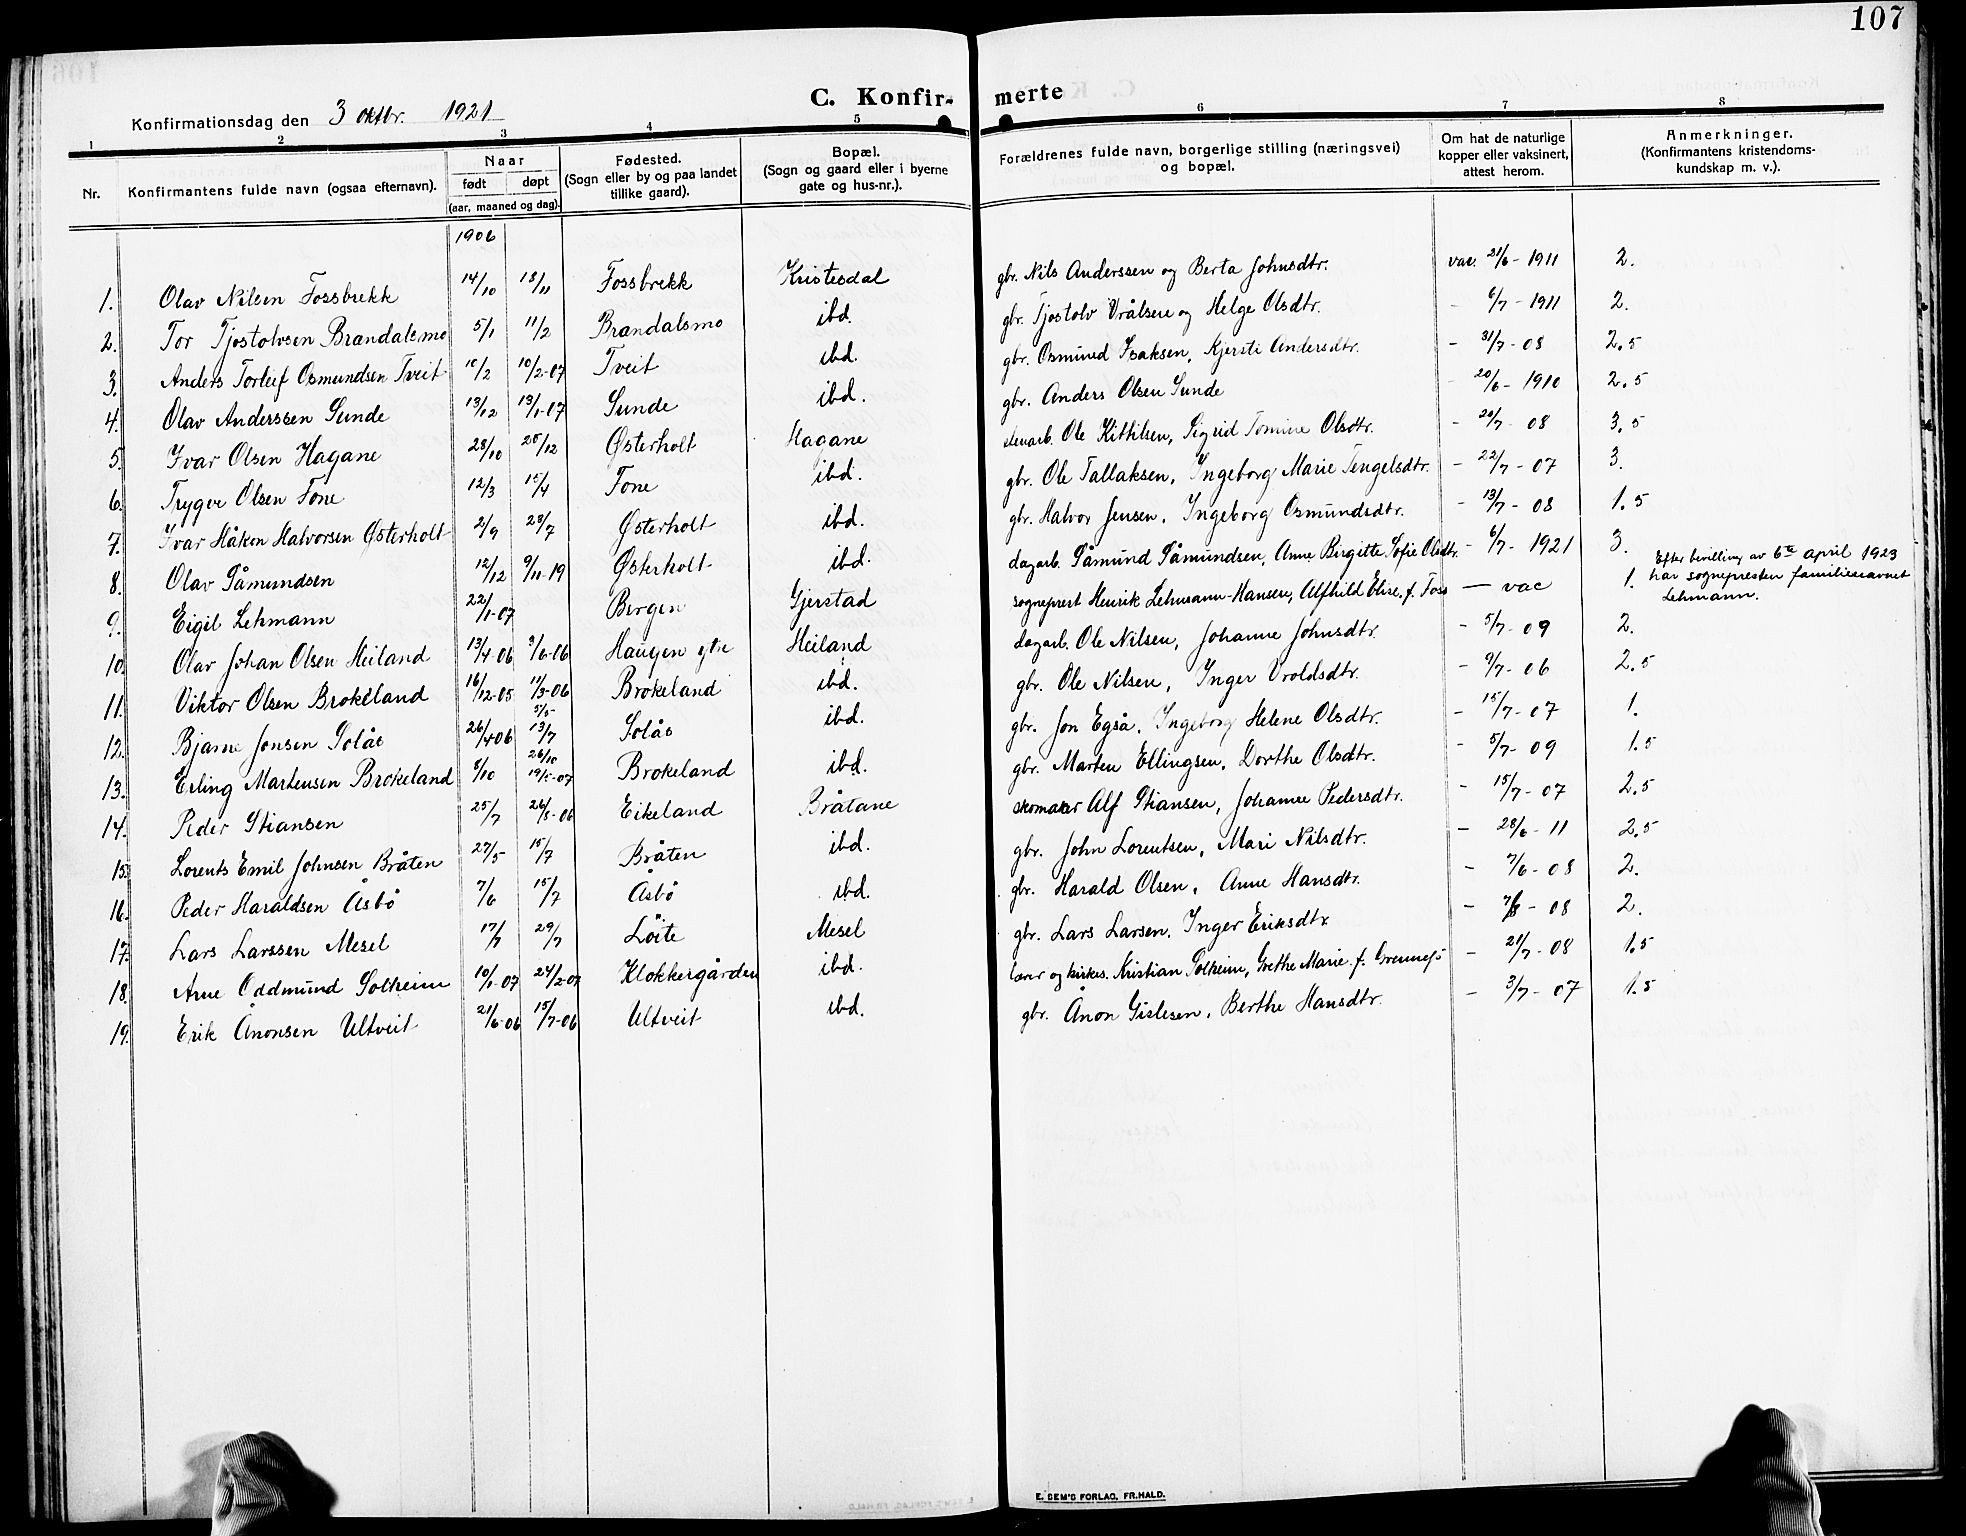 107
C. Konfir- merte
Konfirmationsdag den 3 oktbr. 1921
1 2 3 4 5 6 7 8
Nr. Konfirmantens fulde navn (ogsaa efternavn). Naar født døpt (aar, maaned og dag). Fødested. (Sogn eller by og paa landet tillike gaard). Bopæl. (Sogn og gaard eller i byerne gate og hus-nr.). Forældrenes fulde navn, borgerlige stilling (næringsvei) og bopæl. Om hat de naturlige kopper eller vaksinert, attest herom. Anmerkninger. (Konfirmantens kristendoms- kundskap m. v.).
1906
1. Olav Nilsen Fossbrekk 14/10 18/11 Fossbrekk Kristesdal gbr. Nils Anderssen og Berta Johnsdtr. vac. 21/6 - 1911 2.
2. Tor Tjostolvsen Brandalsmo 5/1 11/2 Brandalsmo ibd. gbr. Tjostolv Vrålsen og Helge Olsdtr. - 6/7 - 1911 2.
3. Anders Torleif Osmundsen Tveit 10/2 10/2-07 Tveit ibd. gbr. Osmund Isaksen, Kjersti Andersdtr. - 31/7 - 08 2.5
4. Olav Anderssen Sunde 13/12 13/1-07 Sunde ibd. gbr. Anders Olsen Sunde - 20/6 - 1910 2.5
5. Ivar Olsen Hagane 28/10 25/12 Østerholt Hagane Ole Kittilsen, Sigrid Tomine Olsdtr. - 20/7 - 08 3.5
6. Trygve Olsen Fone 12/3 15/4 Fone ibd. gbr. Ole Tallaksen, Ingeborg Marie Tengelsdtr. - 22/7 - 07 3.
7. Ivar Håken Halvorsen Østerholt 2/9 28/7 Østerholt ibd. gbr. Halvor Jensen, Ingeborg Osmundsdtr. - 13/7 - 08 1.5
8. Olav Såmundsen 12/12 9/11-19 Østerholt ibd. dagarb. Såmund Såmundsen, Anne Birgitte Sofie Olsdtr. - 6/7 - 1921 3.
9. Eigil Lehmann 22/1-07 Bergen Gjerstad sogneprest Henrik Lehmann-Hansen, Alfhild Elise, f. Foss — vac 1. Efter bevilling av 6te april 1923
har sognepresten familienavnet
Lehmann.
10. Olav Johan Olsen Heiland 13/4-06 3/6-06 Haugen ytre Heiland dagarb. Ole Nilsen, Johanne Johnsdtr. - 5/7 - 09 2.
11. Viktor Olsen Brokeland 16/12-05 11/3-06 Brokeland ibd. gbr. Ole Nilsen, Inger Vroldsdtr. - 9/7 - 06 2.5
12. Bjarne Jonsen Solås 26/4 06 5/5 13/7 Solås ibd. gbr. Jon Egså, Ingeborg Helene Olsdtr. - 15/7 - 07 1.
13. Erling Martensen Brokeland 8/10 26/10 19/5-07 Brokeland ibd. gbr. Marten Ellingsen, Dorthe Olsdtr. - 5/7 - 09 1.5
14. Peder Stiansen 25/7 26/8-06 Eikeland Bråtane skomaker Alf Stiansen, Johanne Pedersdtr. - 15/7 - 07 2.5
15. Lorents Emil Johnsen Bråten 27/5 15/7 Bråten ibd. gbr. John Lorentsen, Mari Nilsdtr. - 28/6 - 11 2.5
16. Peder Haraldsen Åsbö 7/6 15/7 Åsbö ibd. gbr. Harald Olsen, Anne Hansdtr. - 7/6 - 08 2.
17. Lars Larssen Mesel 17/7 29/7 Löite Mesel gbr. Lars Larsen, Inger Eriksdtr - 08 2.
18. Arne Oddmund Solheim 10/1-07 24/2-07 Klokkergården ibd. lærer og kirkes. Kristian Solheim, Grethe Marie f. - 21/7 - 08 1.5
19. Erik Ånonsen Ulltveit 21/6-06 15/7-06 Ulltveit ibd. gbr. Ånon Gislesen, Berthe Hansdtr. - 3/7 - 07 1.5
E. SEM'S FORLAG, FR.HALD.